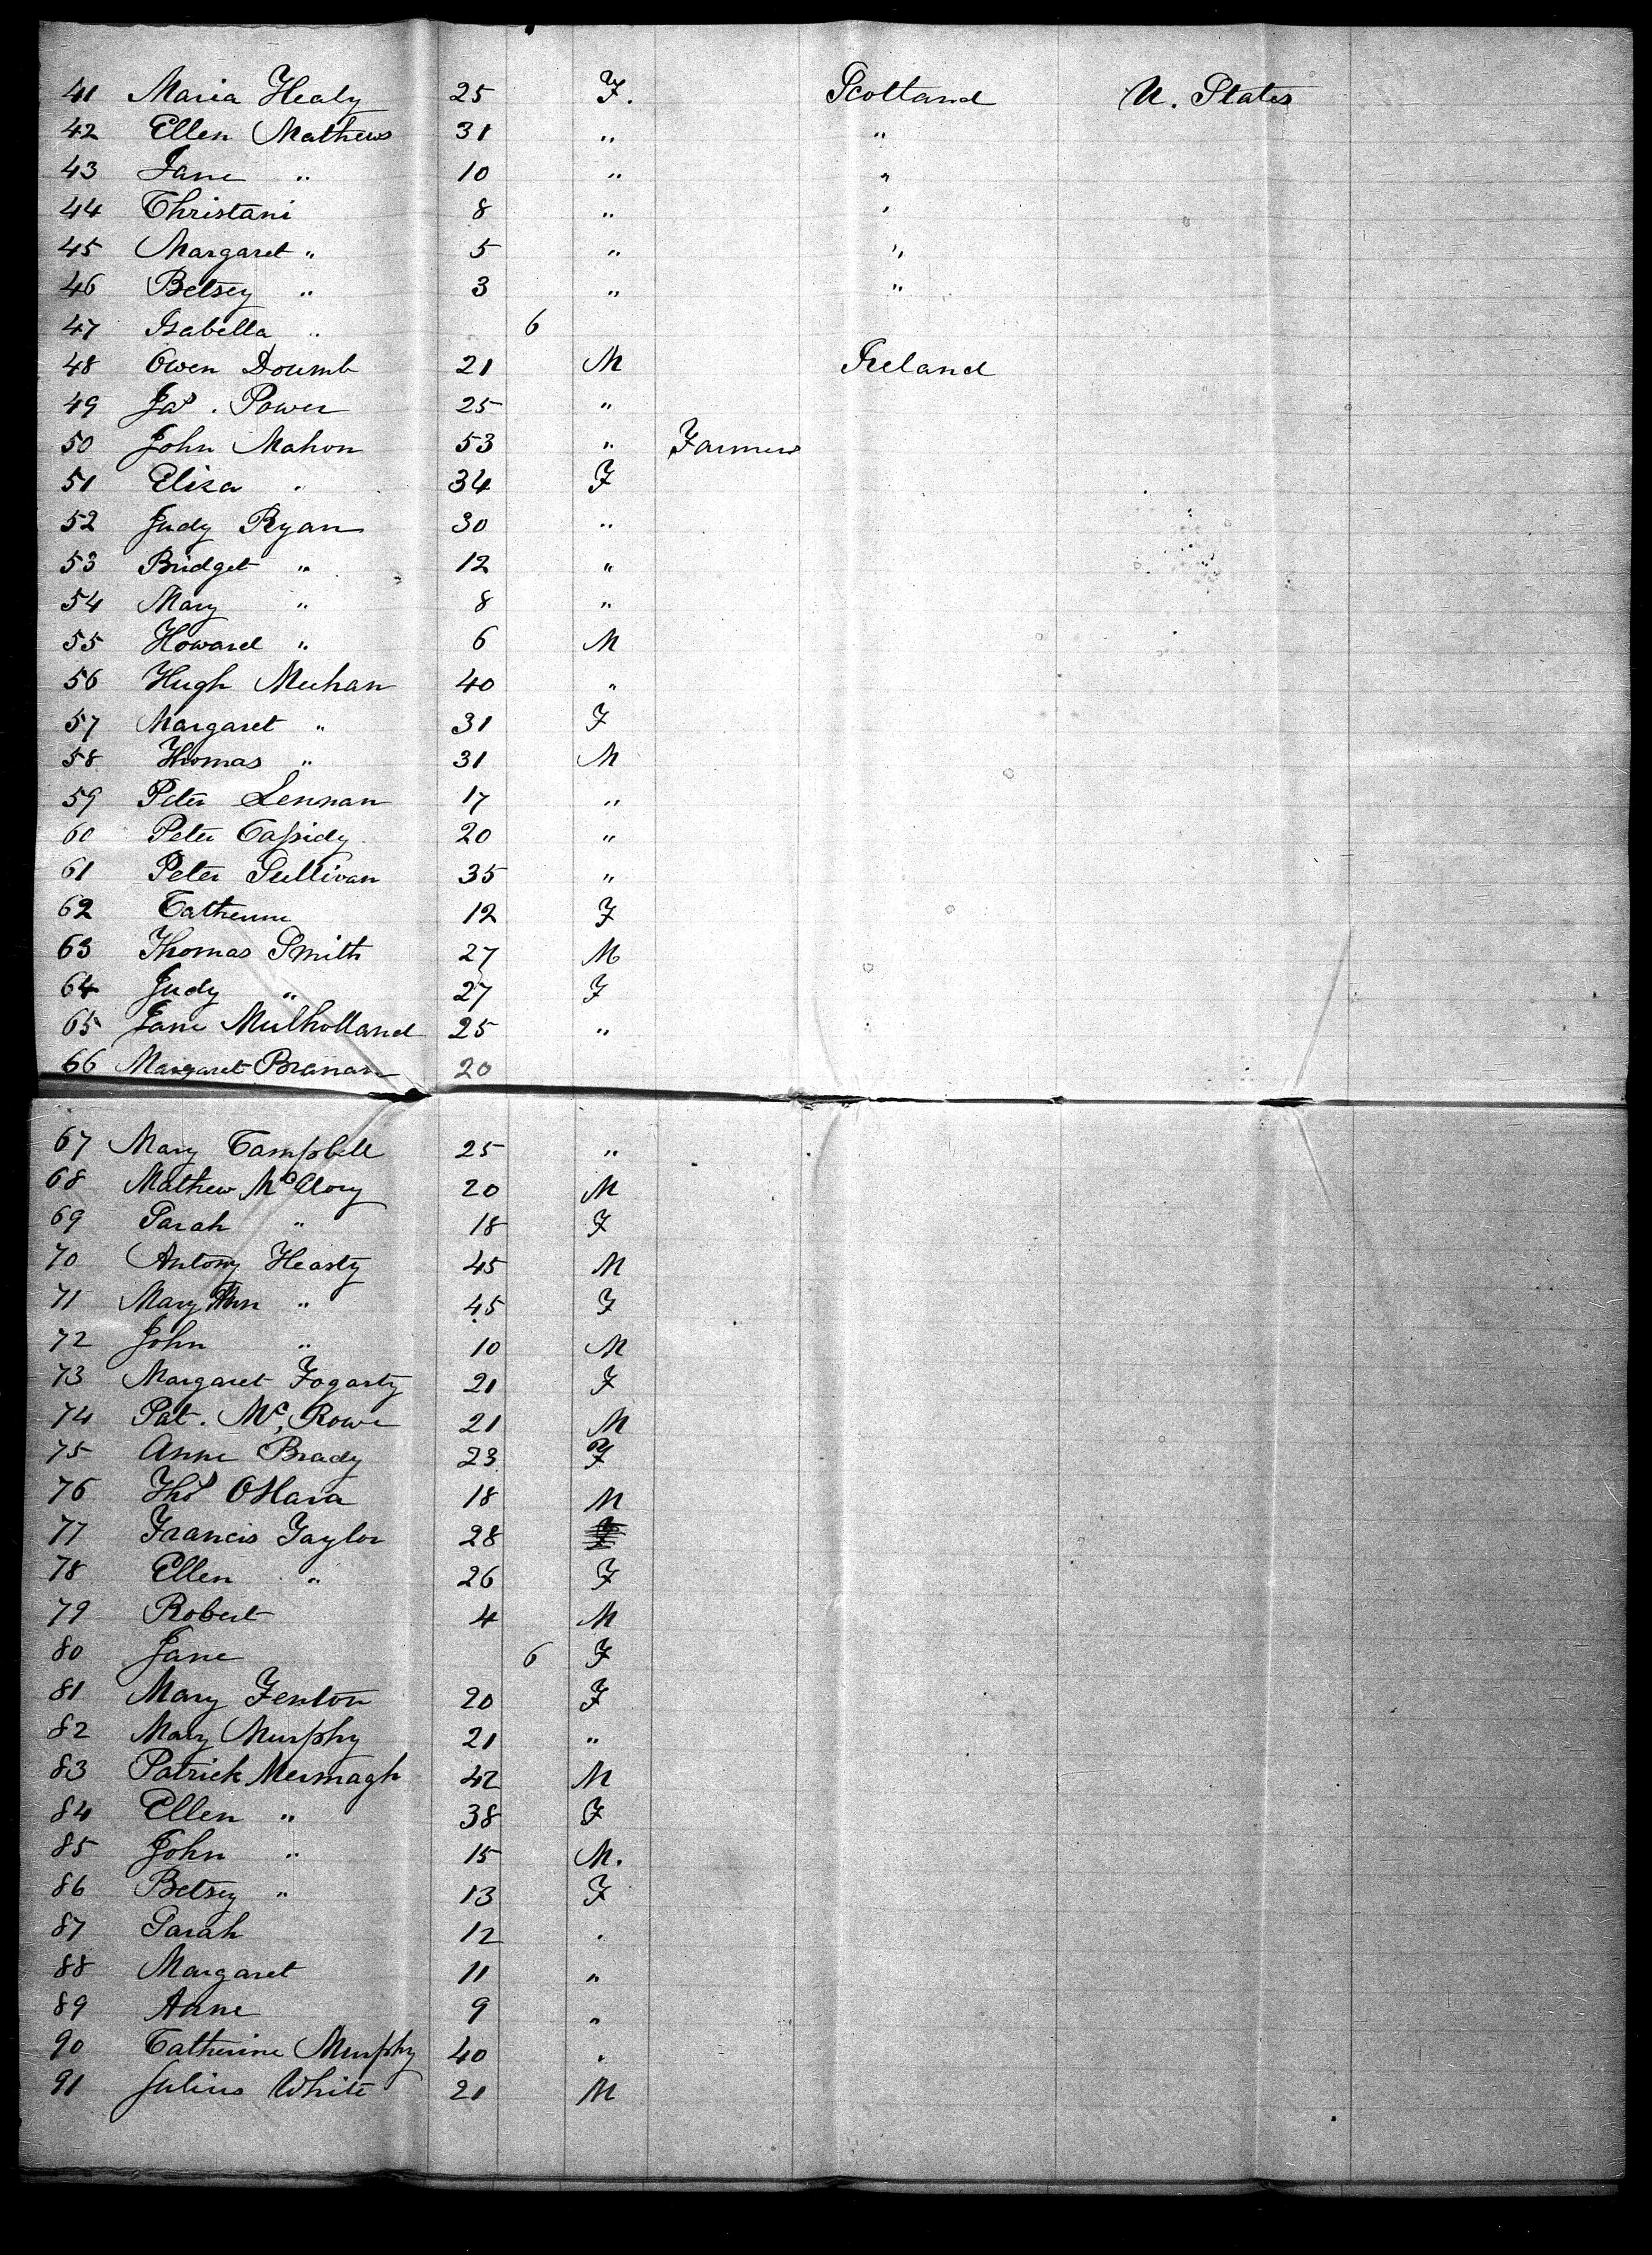 41 Maria Healy 25 F. Scotland U. States
42 Ellen Mathews 31 " "
43 Jane " 10 " "
44 Christani 8 " "
45 Margaret " 5 " "
46 Betsey " 3 " "
47 Isabella " 6
48 Owen Doumb 21 M Ireland
49 Jas. Power 25 "
50 John Mahon 53 " Farmers
51 Eliza " 34 F
52 Judy Ryan 30 "
53 Bridget " 12 "
54 Mary " 8 "
55 Howard " 6 M
56 Hugh Meehan 40 "
57 Margaret " 31 F
58 Thomas " 31 M
59 Peter Lennan 17 "
60 Peter Cassidy 20 "
61 Peter Sullivan 35 "
62 Catherine 12 F
63 Thomas Smith 27 M
64 Judy " 27 F
65 Jane Mulholland 25 "
66 Margaret Branan 20
67 Mary Campbell 25 "
68 Mathew McClory 20 M
69 Sarah " 18 F
70 Antony Hearty 45 M
71 Mary Ann " 45 F
72 John " 10 M
73 Margaret Fogarty 21 F
74 Pat. Mc. Rowe 21 M
75 Anne Brady 23 F
76 Thos OHara 18 M
77 Francis Taylor 28
78 Ellen " 26 F
79 Robert 4 M
80 Jane 6 F
81 Mary Fenton 20 F
82 Mary Murphy 21 "
83 Patrick Mermagh 42 M
84 Ellen " 38 F
85 John " 15 M.
86 Betsey " 13 F
87 Sarah 12 "
88 Margaret 11 "
89 Anne 9 "
90 Catherine Murphy 40 "
91 Julius White 21 M